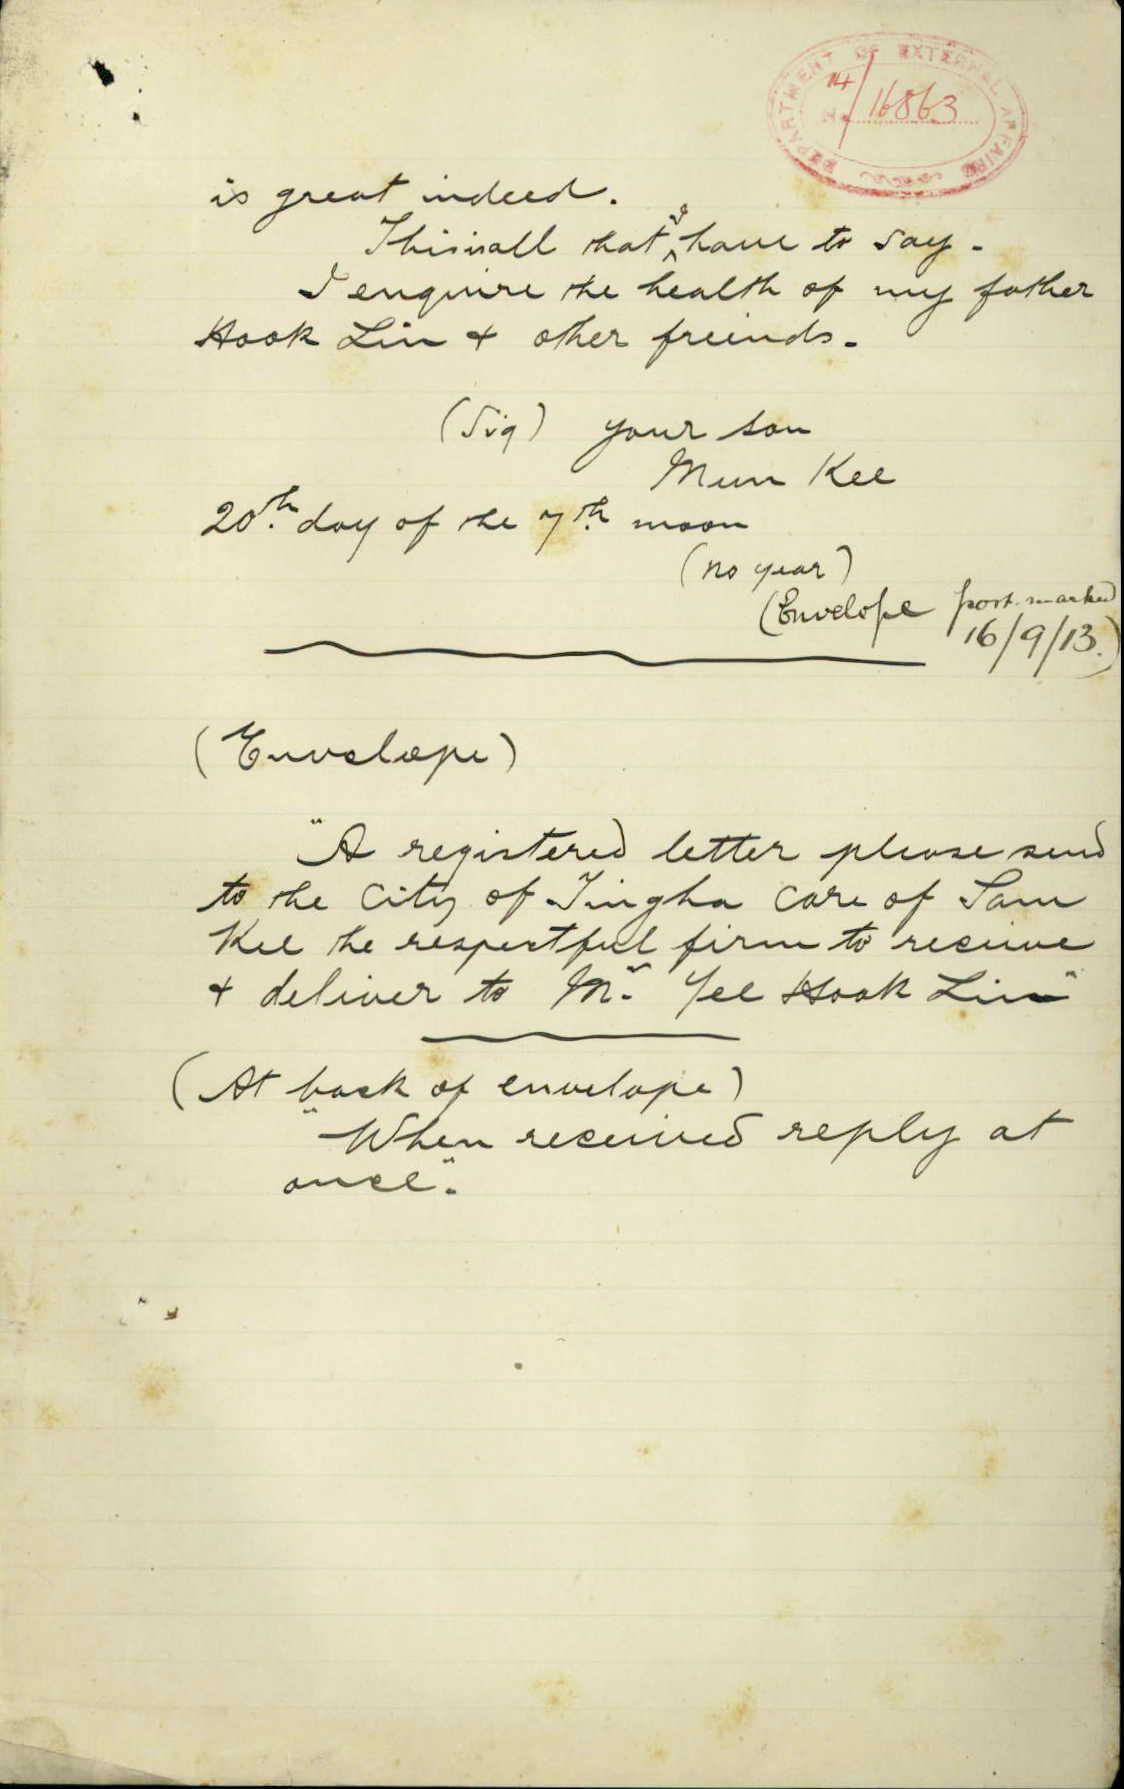 DEPARTMENT OF EXTERNAL AFFAIRS
14/16863
is great indeed.
This is all that I have to say -
I enquire the health of my father
Hook Lin & other freinds -
(Sig) your son
Mun Kee
20th day of the 7th moon
(no year)
(Envelope post-marked
16/9/13.)
(Envelope)
"A registered letter please send
to the City of Tingha care of Sam
Kee the respectful firm to receive
& deliver to Mr. Yee Hook Lin"
(At back of envelope)
"When received reply at
once".